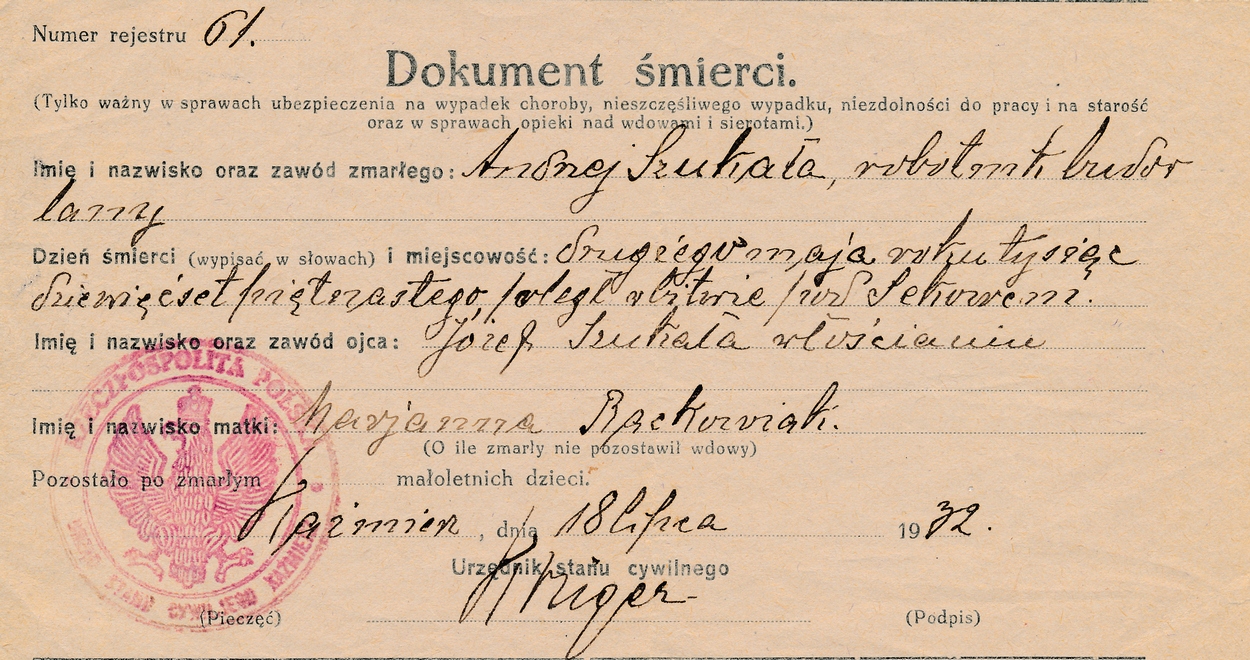 Numer rejestru 61.
Dokument śmierci.
(Tylko ważny w sprawach ubezpieczenia na wypadek choroby, nieszczęśliwego wypadku, niezdolności do pracy i na starość
oraz w sprawach opieki nad wdowami i sierotami.)
Imię i nazwisko oraz zawód zmarłego: Andrzej Szukała, robotnik budow
lany
Dzień śmierci (wypisać w słowach) i miejscowość: drugiego maja roku tysiąc
dziewięćset piętnastego, poległ w bitwie pod Sekowem.
Imię i nazwisko oraz zawód ojca: Józef Szukała włościanin
Imię i nazwisko matki: Marjanna Rackowiak.
(O ile zmarły nie pozostawił wdowy)
Pozostało po zmarłym małoletnich dzieci.
Kaźmierz, dnia 18 lipca 1932.
Urzędnik stanu cywilnego
Krüger
(Pieczęć) (Podpis)
RZECZPOSPOLITA POLSKA
URZĄD STANU CYWILNEGO KAŹMIERZ